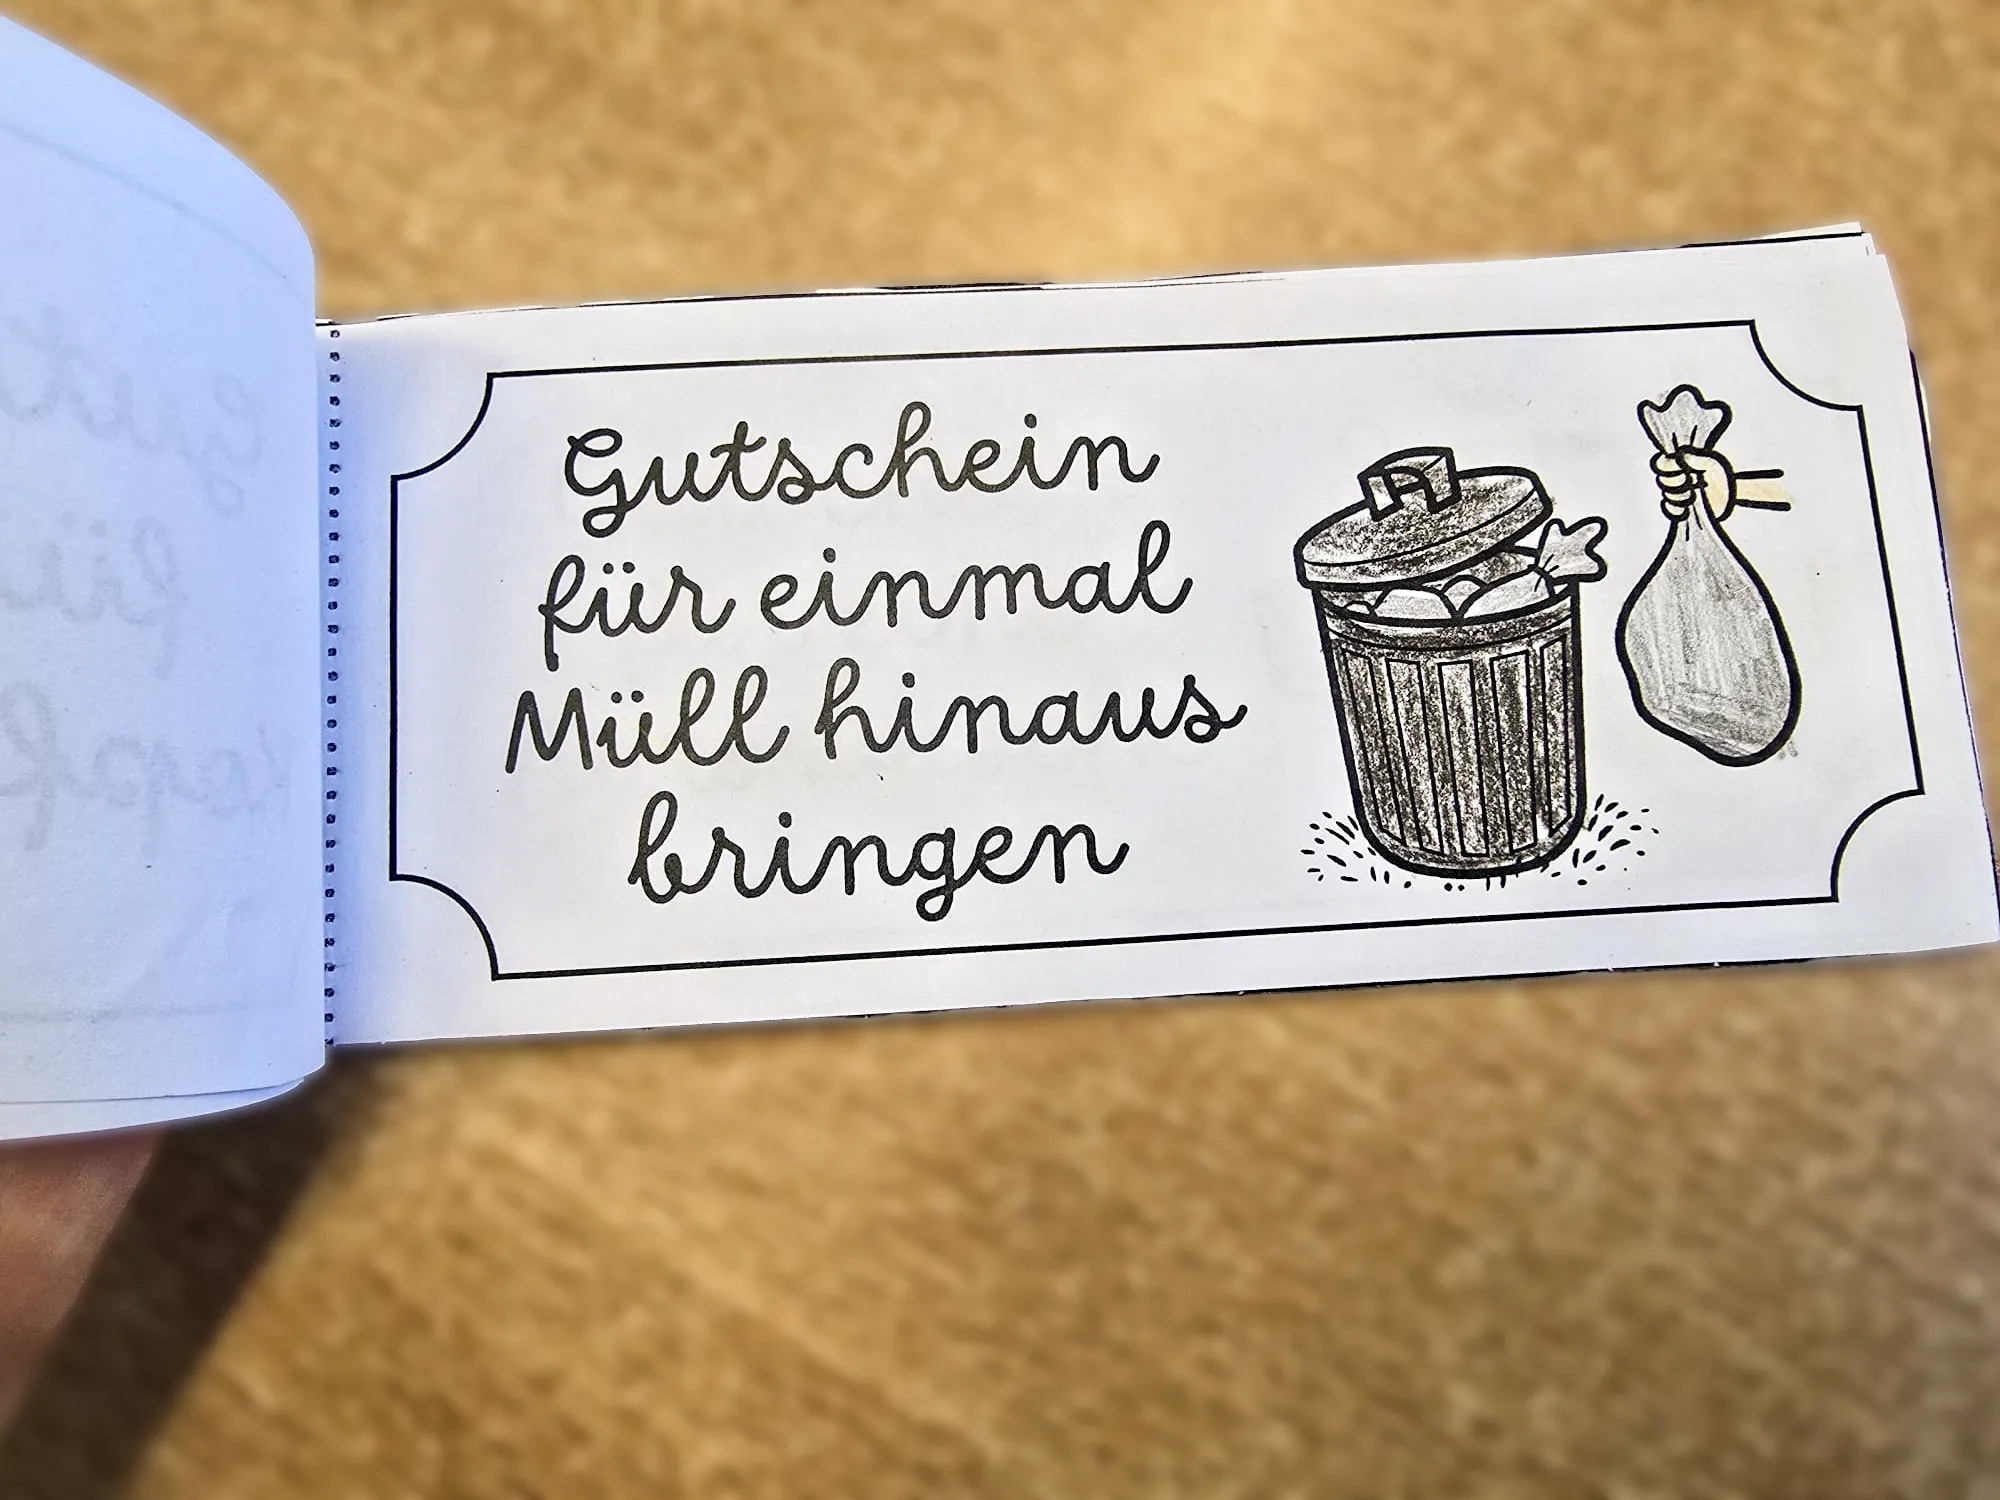 Gutschein
für einmal
Müll hinaus
bringen